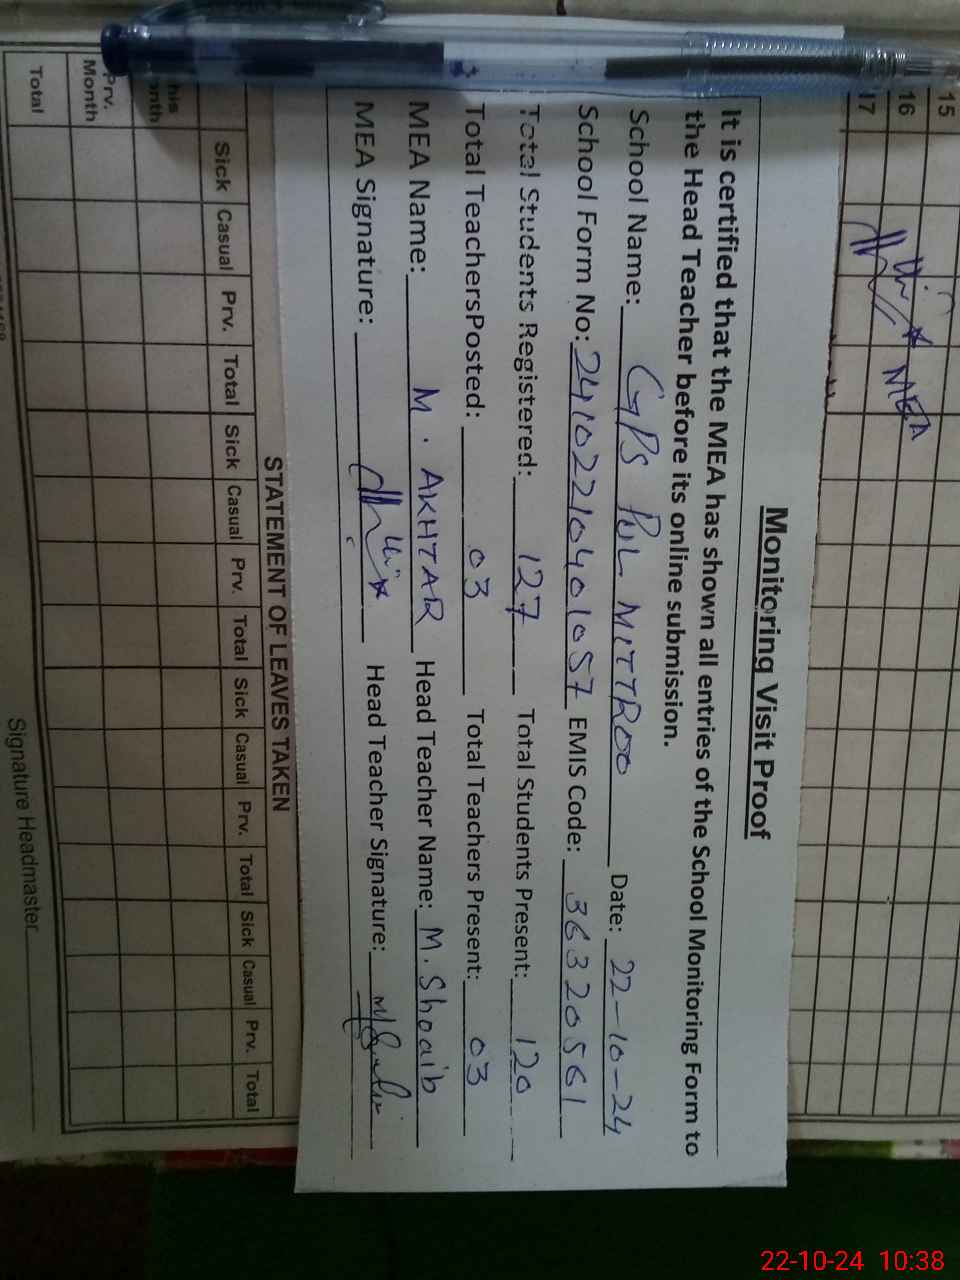 15
16
17
MEA
Monitoring Visit Proof
It is certified that the MEA has shown all entries of the School Monitoring Form to
the Head Teacher before its online submission.
School Name: GPS PUL MITTROO Date: 22-10-24
School Form No: 2410221040401057 EMIS Code: 36320561
Total Students Registered: 127 Total Students Present: 120
Total TeachersPosted: 03 Total Teachers Present: 03
MEA Name: M. AKHTAR Head Teacher Name: M. Shoaib
MEA Signature: Head Teacher Signature:
STATEMENT OF LEAVES TAKEN
Sick Casual Prv. Total Sick Casual Prv. Total Sick Casual Prv. Total Sick Casual Prv. Total
Prv.
Month
Total
Signature Headmaster
22-10-24 10:38